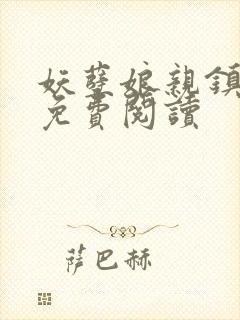 妖孽娘親鎮
免費閱讀
薩巴赫